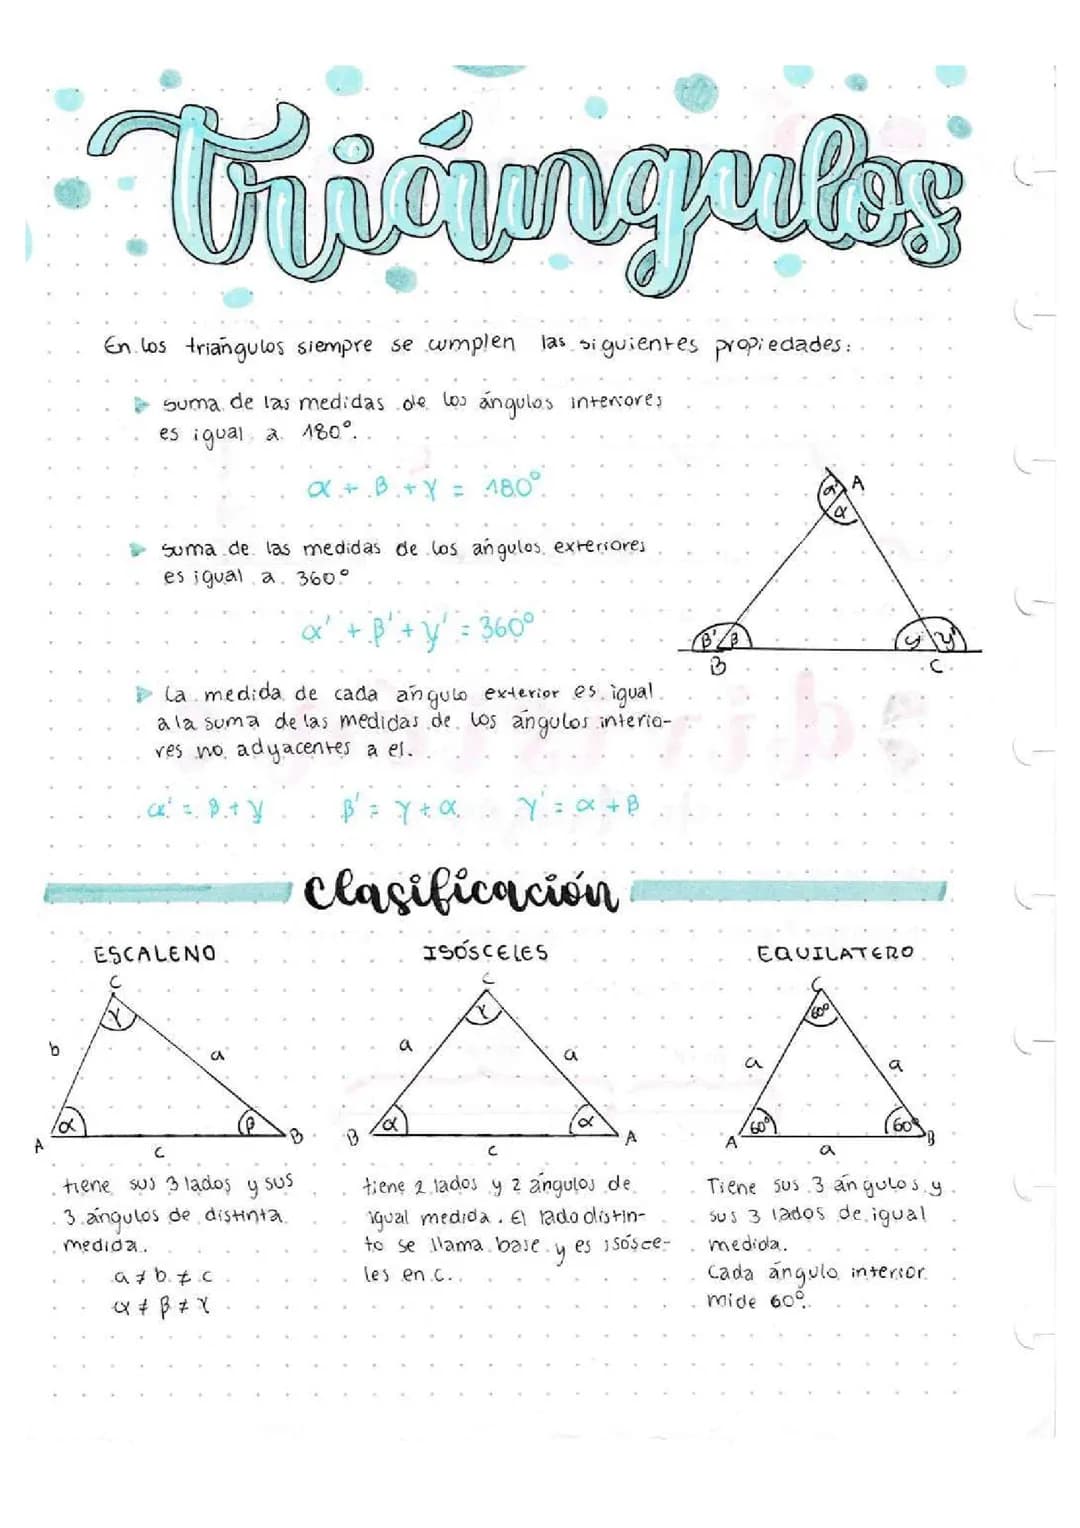 Triángulos
En los triángulos siempre se cumplen las siguientes propiedades:
suma de las medidas de los ángulos interiores
es igual a 180°.
α + β + γ = 180°
suma de las medidas de los ángulos exteriores
es igual a 360°
α' + β' + γ' = 360°
La medida de cada ángulo exterior es igual
a la suma de las medidas de los ángulos interio-
res no adyacentes a el.
α' = β + γ β' = γ + α γ' = α + β
α' A
α
β' β γ γ'
B C
Clasificación
ESCALENO ISÓSCELES EQUILATERO
C C C
γ γ 60°
b a a a a a
α β α α 60° 60°
A B B A A B
c c a
tiene sus 3 lados y sus
3 ángulos de distinta
medida.
a ≠ b ≠ c
α ≠ β ≠ γ
tiene 2 lados y 2 ángulos de
igual medida. El lado distin-
to se llama base y es isósce-
les en C.
Tiene sus 3 ángulos y
sus 3 lados de igual
medida.
Cada ángulo interior
mide 60°.